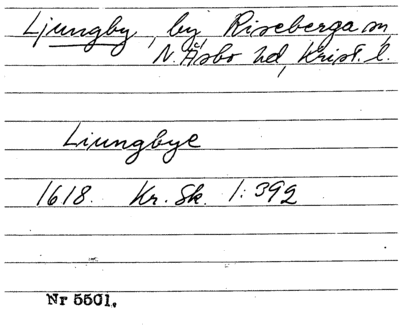 Ljungby, by, Riseberga sn,
N. Åsbo hd, Krist. l.
Liungbye
1618. Kr. Sk. 1:392
Nr 5501.